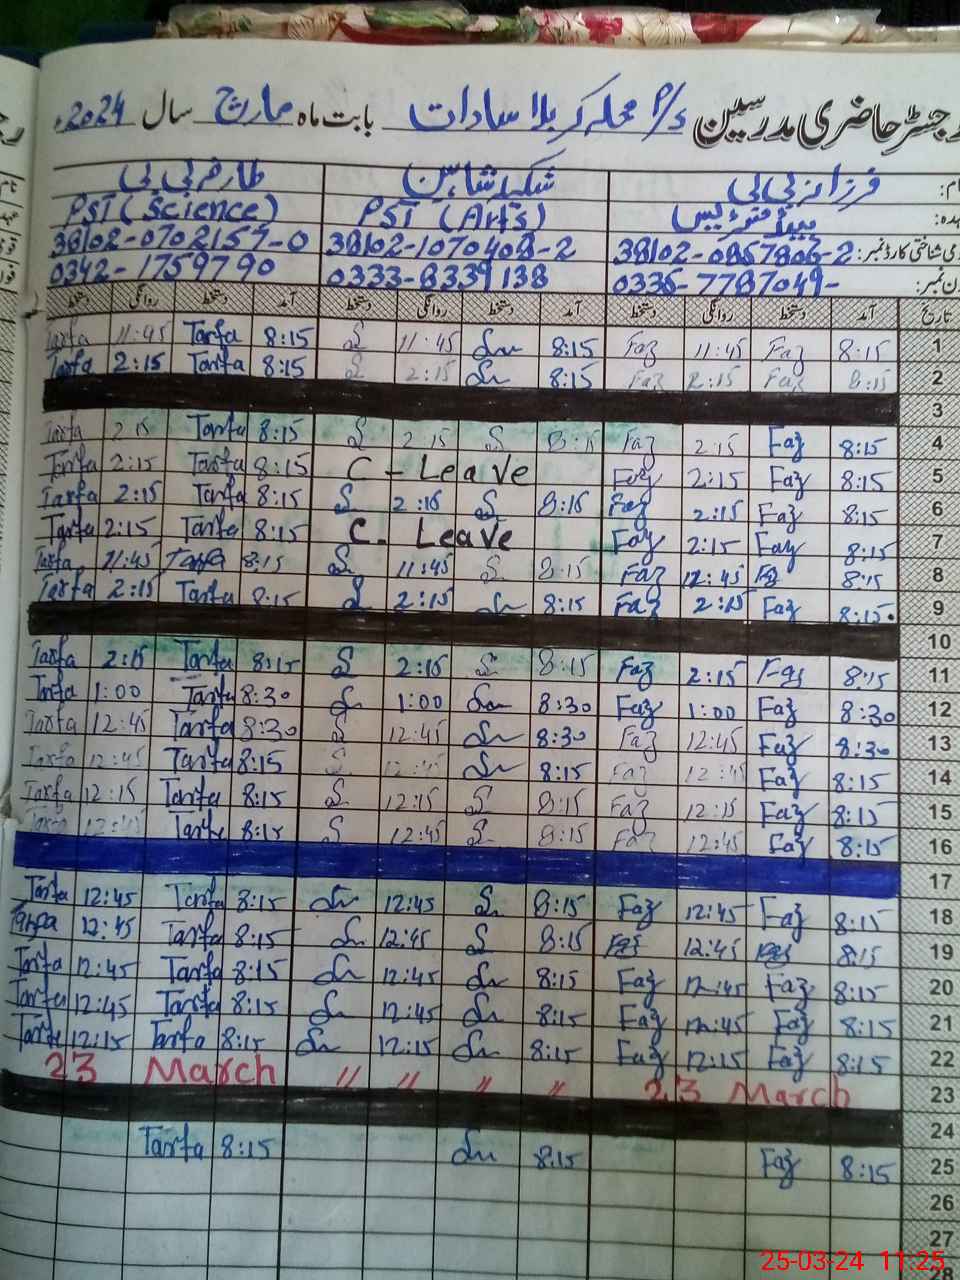 رجسٹر حاضری مدرسین P/S محلہ کربلا سادات بابت ماہ مارچ سال 2024ء
نام: فرزانہ بی بی شکیلہ شاہین طارفہ بی بی
عہدہ: ہیڈ مسٹریس PST (Arts) PST (Science)
قومی شناختی کارڈ نمبر: 38102-0857806-2 38102-1070408-2 38102-0702157-0
فون نمبر: 0336-7787049- 0333-8339138 0342-1759790
تاریخ آمد دستخط روانگی دستخط آمد دستخط روانگی دستخط آمد دستخط روانگی دستخط
1 8:15 Faz 11:45 Faz 8:15 11:45 8:15 Tarfa 11:45 Tarfa
2 8:15 Faz 2:15 Faz 8:15 2:15 8:15 Tarfa 2:15 Tarfa
3
4 8:15 Faz 2:15 Faz 8:15 S 2:15 S 8:15 Tarfa 2:15 Tarfa
5 8:15 Faz 2:15 Faz C - Leave 8:15 Tarfa 2:15 Tarfa
6 8:15 Faz 2:15 Faz 8:16 S 2:16 S 8:15 Tarfa 2:15 Tarfa
7 8:15 Faz 2:15 Faz C - Leave 8:15 Tarfa 2:15 Tarfa
8 8:15 Faz 12:45 Faz 8:15 S 11:45 S 8:15 Tarfa 11:45 Tarfa
9 8:15 Faz 2:15 Faz 8:15 2:15 S 8:15 Tarfa 2:15 Tarfa
10
11 8:15 Faz 2:15 Faz 8:15 S 2:15 S 8:15 Tarfa 2:15 Tarfa
12 8:30 Faz 1:00 Faz 8:30 1:00 8:30 Tarfa 1:00 Tarfa
13 8:30 Faz 12:45 Faz 8:30 12:45 S 8:30 Tarfa 12:45 Tarfa
14 8:15 Faz 12:45 Faz 8:15 12:45 S 8:15 Tarfa 12:45 Tarfa
15 8:15 Faz 12:15 Faz 8:15 S 12:15 S 8:15 Tarfa 12:15 Tarfa
16 8:15 Faz 12:45 Faz 8:15 S 12:45 S 8:15 Tarfa 12:45 Tarfa
17
18 8:15 Faz 12:45 Faz 8:15 S 12:45 8:15 Tarfa 12:45 Tarfa
19 8:15 Faz 12:45 Faz 8:15 S 12:45 8:15 Tarfa 12:45 Tarfa
20 8:15 Faz 12:45 Faz 8:15 12:45 8:15 Tarfa 12:45 Tarfa
21 8:15 Faz 12:45 Faz 8:15 12:45 8:15 Tarfa 12:45 Tarfa
22 8:15 Faz 12:15 Faz 8:15 12:15 8:15 Tarfa 12:15 Tarfa
23 23 March " " " " 23 March
24
25 8:15 Faz 8:15 8:15 Tarfa
26
27
28
25-03-24 11:25